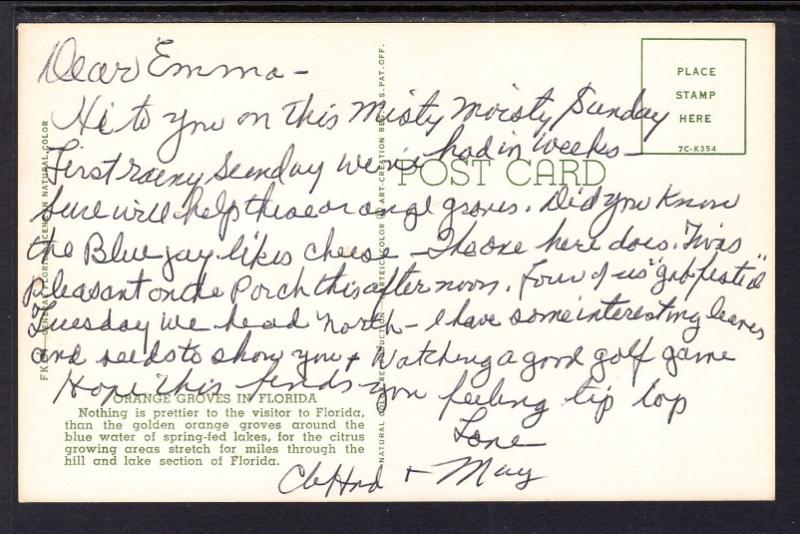 Dear Emma -
Hi to you on this Misty Moisty Sunday
First rainy Sunday we've had in weeks -
Sure will help these orange groves. Did you know
the Blue jay likes cheese - The one here does. 'Twas
Pleasant on the Porch this afternoon. Four of us "gab-fested"
Tuesday we head north - I have some interesting leaves
and seeds to show you + Watching a good golf game
Hope this finds you feeling tip top
Love
Clifford + May
PLACE
STAMP
HERE
7C-K354
POST CARD
ORANGE GROVES IN FLORIDA
Nothing is prettier to the visitor to Florida,
than the golden orange groves around the
blue water of spring-fed lakes, for the citrus
growing areas stretch for miles through the
hill and lake section of Florida.
GENERAL FLORIDA SCENE IN NATURAL COLOR
NATURAL COLOR REPRODUCTION ART-CREATION REG. U.S. PAT. OFF.